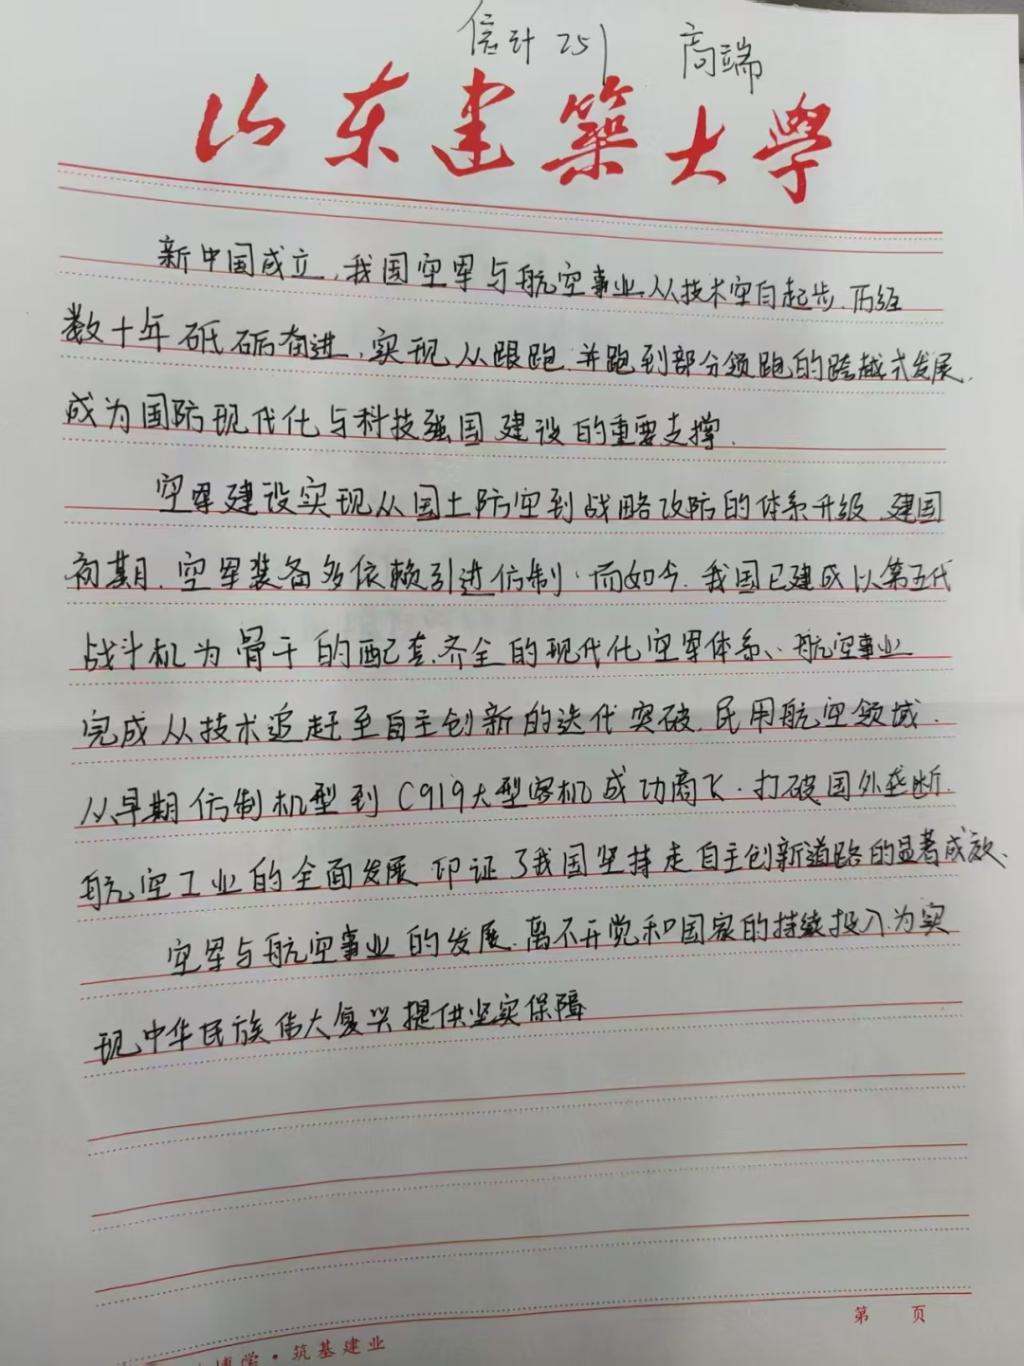 信计251 高端
山东建築大學
新中国成立,我国空军与航空事业从技术空白起步,历经
数十年砥砺奋进,实现从跟跑、并跑到部分领跑的跨越式发展,
成为国防现代化与科技强国建设的重要支撑.
空军建设实现从国土防空到战略攻防的体系升级.建国
初期,空军装备多依赖引进仿制.而如今,我国已建成以第五代
战斗机为骨干的配套齐全的现代化空军体系、航空事业
完成从技术追赶至自主创新的迭代突破.民用航空领域.
从早期仿制机型到C919大型客机成功商飞.打破国外垄断.
航空工业的全面发展印证了我国坚持走自主创新道路的显著成效、
空军与航空事业的发展,离不开党和国家的持续投入为实
现中华民族伟大复兴提供坚实保障
第 页
博学·筑基建业